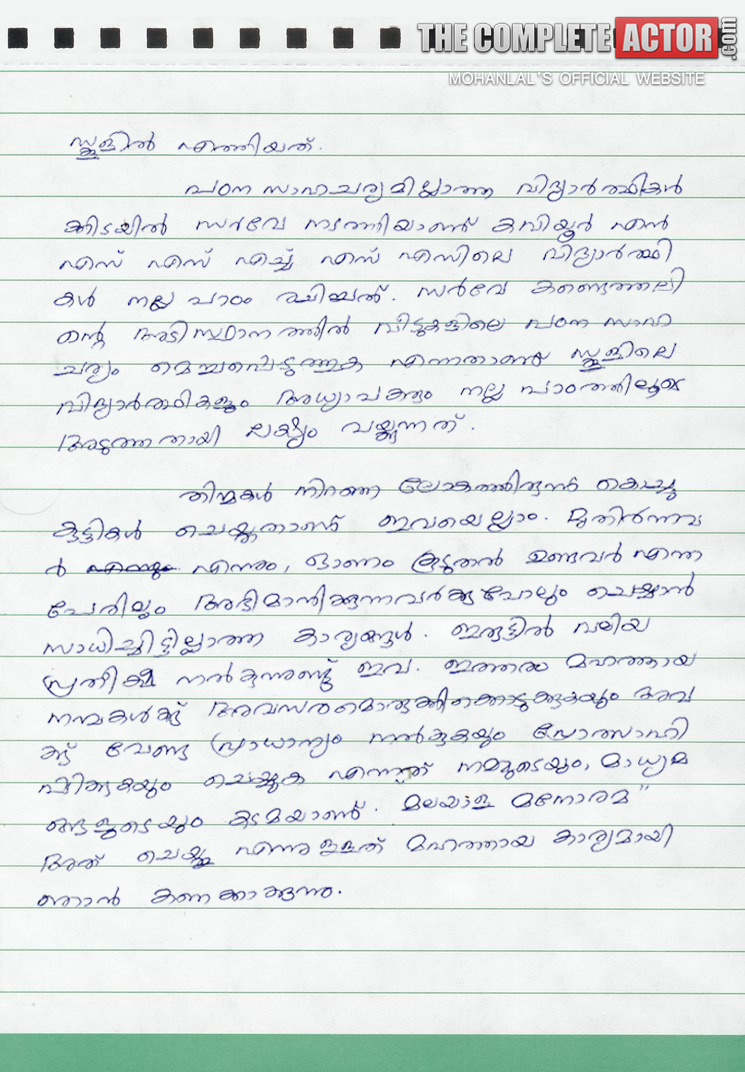 THE COMPLETE ACTOR.com
MOHANLAL'S OFFICIAL WEBSITE
സ്കൂളിൽ എത്തിയത്.
പഠന സാഹചര്യമില്ലാത്ത വിദ്യാർത്ഥികൾ
ക്കിടയിൽ സർവേ നടത്തിയാണ് കവിയൂർ എൻ
എസ് എസ് എച്ച് എസ് എസിലെ വിദ്യാർത്ഥി
കൾ നല്ല പാഠം രചിച്ചത്. സർവേ കണ്ടെത്തലി
ന്റെ അടിസ്ഥാനത്തിൽ വീടുകളിലെ പഠന സാഹ
ചര്യം മെച്ചപ്പെടുത്തുക എന്നതാണ് സ്കൂളിലെ
വിദ്യാർത്ഥികളും അധ്യാപകരും നല്ല പാഠത്തിലൂടെ
അടുത്തതായി ലക്ഷ്യം വയ്ക്കുന്നത്.
തിന്മകൾ നിറഞ്ഞ ലോകത്തിരുന്ന് കൊച്ചു
കുട്ടികൾ ചെയ്തതാണ് ഇവയെല്ലാം. മുതിർന്നവ
ർ എന്നും, ഓണം കൂടുതൽ ഉണ്ടവർ എന്ന
പേരിലും അഭിമാനിക്കുന്നവർക്കുപോലും ചെയ്യാൻ
സാധിച്ചിട്ടില്ലാത്ത കാര്യങ്ങൾ. ഇരുട്ടിൽ വലിയ
പ്രതീക്ഷ നൽകുന്നുണ്ട് ഇവ. ഇത്തരം മഹത്തായ
നന്മകൾക്ക് അവസരമൊരുക്കിക്കൊടുക്കുകയും അവ
ക്ക് വേണ്ട പ്രാധാന്യം നൽകുകയും പ്രോത്സാഹി
പ്പിക്കുകയും ചെയ്യുക എന്നത് നമ്മുടെയും, മാധ്യമ
ങ്ങളുടെയും കടമയാണ്. മലയാള മനോരമ"
അത് ചെയ്തു എന്നുള്ളത് മഹത്തായ കാര്യമായി
ഞാൻ കണക്കാക്കുന്നു.